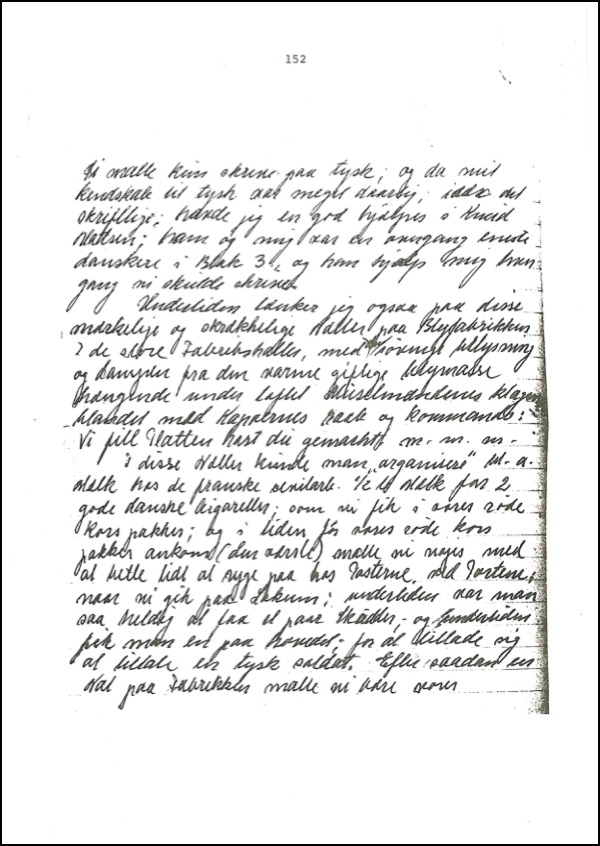 152
Vi måtte kun skrive paa tysk; og da mit
kendskab til tysk var meget daarlig; især det
skriftlige; havde jeg en god hjælper i Knud
ham og mig var en overgang eneste
danskere i Blok 3, og han hjalp mig hver
gang vi skulde skrive.
Undertiden tænker jeg ogsaa paa disse
mærkelige og skrækkelige Nætter paa Blyfabrikken
I de store Fabrikshaller, med belysning
og Dampen fra den varme giftige blymasse
hængende under loftet klagen
blandet med Kapoernes raab og kommando:
Vi fill Platten hast du gemacht m. m. m.
I disse Nætter kunde man „organisere" bl. a.
Melk hos de franske civilarb. 1/2 L Melk for 2
gode danske Cigaretter; som vi fik i vores røde
Kors pakker; og i tiden før vores røde kors
pakker ankom (den værste) måtte vi nøjes med
at betle lidt at ryge paa hos Posterne ved Porten;
naar vi gik paa Lokum; undertiden var man
saa heldig at faa et paar Skodder; og undertiden
fik man en paa hovedet; for at tillade sig
at tiltale en tysk soldat. Efter saadan en
Nat paa Fabrikken måtte vi bære vores